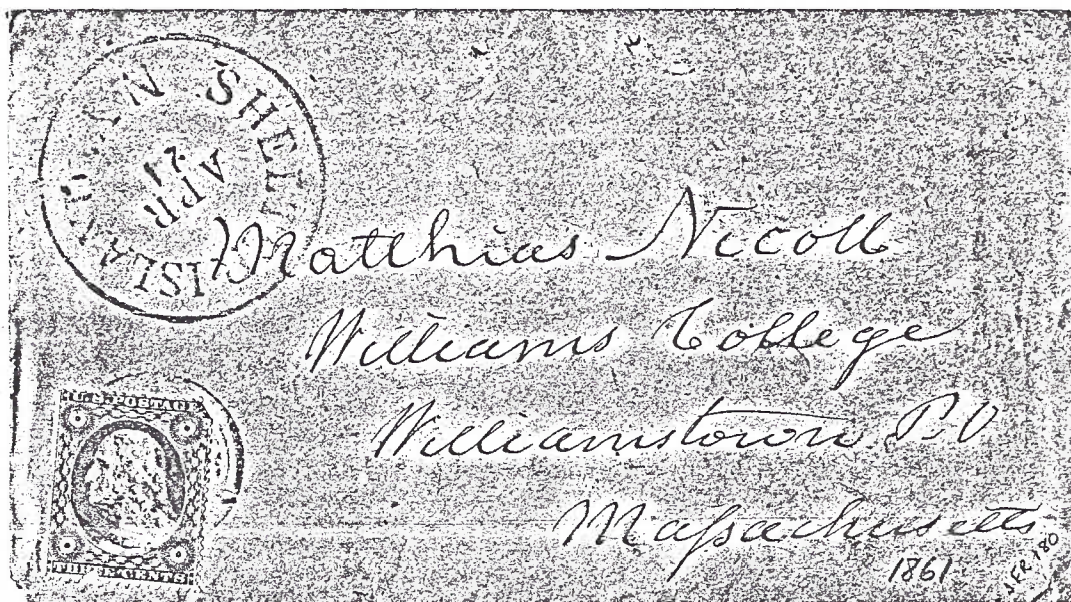 SHELTER ISLAND N.Y.
APR
Matthias Nicoll
Williams College
Williamstown P.O
Massachusetts
1861
U.S. POSTAGE
THREE CENTS